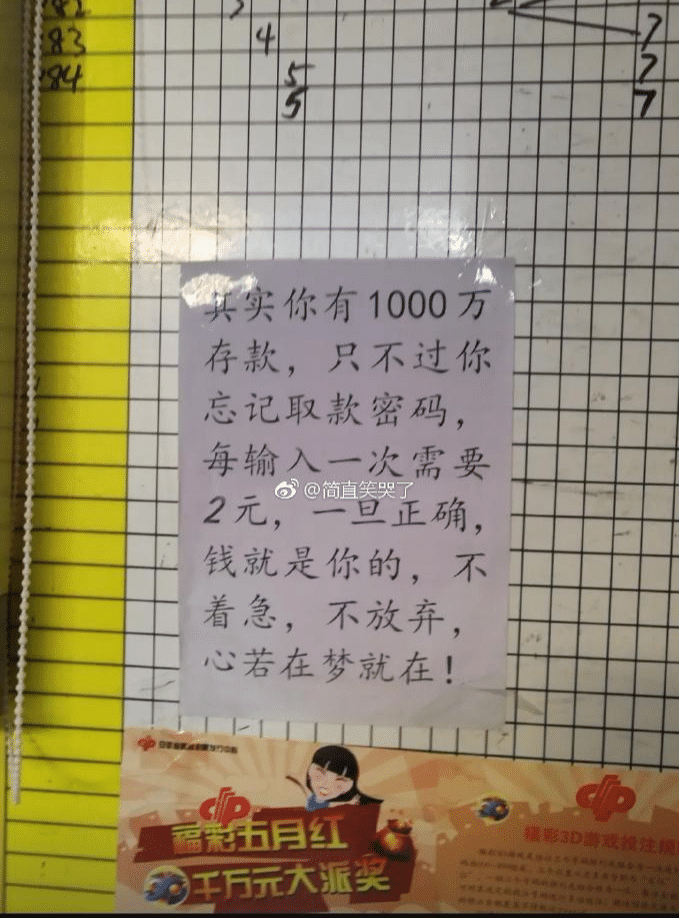 83
84
4
5
5
7
7
7
其实你有1000万
存款，只不过你
忘记取款密码，
每输入一次需要
@简直笑哭了
2元，一旦正确，
钱就是你的，不
着急，不放弃，
心若在梦就在！
福彩五月红
3D千万元大派奖
3D
福彩3D游戏投注规